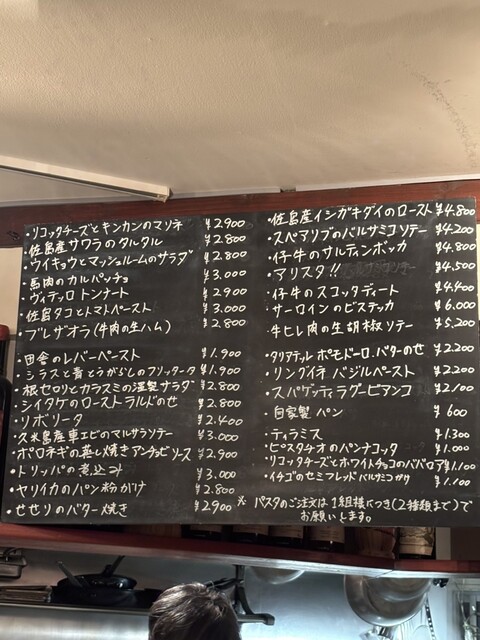 ・リコッタチーズとキンカンのマリネ ¥2900
・佐島産サワラのタルタル ¥2.800
・ウイキョウとマッシュルームのサラダ ¥2.800
・馬肉のカルパッチョ ¥3.000
・ヴィテッロ トンナート ¥2900
・佐島タコとトマトペースト ¥3.000
・ブレザオラ(牛肉の生ハム) ¥2800
・田舎のレバーペースト ¥1.900
・シラスと青とうがらしのフリッタータ ¥1.900
・根セロリとカラスミの温製サラダ ¥2.800
・シイタケのロースト ラルドのせ ¥2.800
・リボリータ ¥2.400
・久米島産車エビのマルサラソテー ¥3.000
・ポロネギの蒸し焼きアンチョビソース ¥2.900
・トリッパの煮込み ¥3.000
・ヤリイカのパン粉がけ ¥2.800
・せせりのバター焼き ¥2900
・佐島産イシガキダイのロースト ¥4.800
・スペアリブのバルサミコソテー ¥4.200
・仔牛のサルティンボッカ ¥4.800
・アリスタ!! ¥4.500
・仔牛のスコッタディート ¥4.400
・サーロインのビステッカ ¥6.000
・牛ヒレ肉の生胡椒ソテー ¥5.200
・タリアテッレ ポモドーロ.バターのせ ¥2.200
・リングイネ バジルペースト ¥2.200
・スパゲッティラグービアンコ ¥2.100
・自家製パン ¥600
・ティラミス ¥1.300
・ピスタチオのパンナコッタ ¥1.000
・リコッタチーズとホワイトチョコのババロア ¥1.100
・イチゴのセミフレッド バルサミコがけ ¥1.100
※ パスタのご注文は1組様につき(2種類まで)で
お願いします。